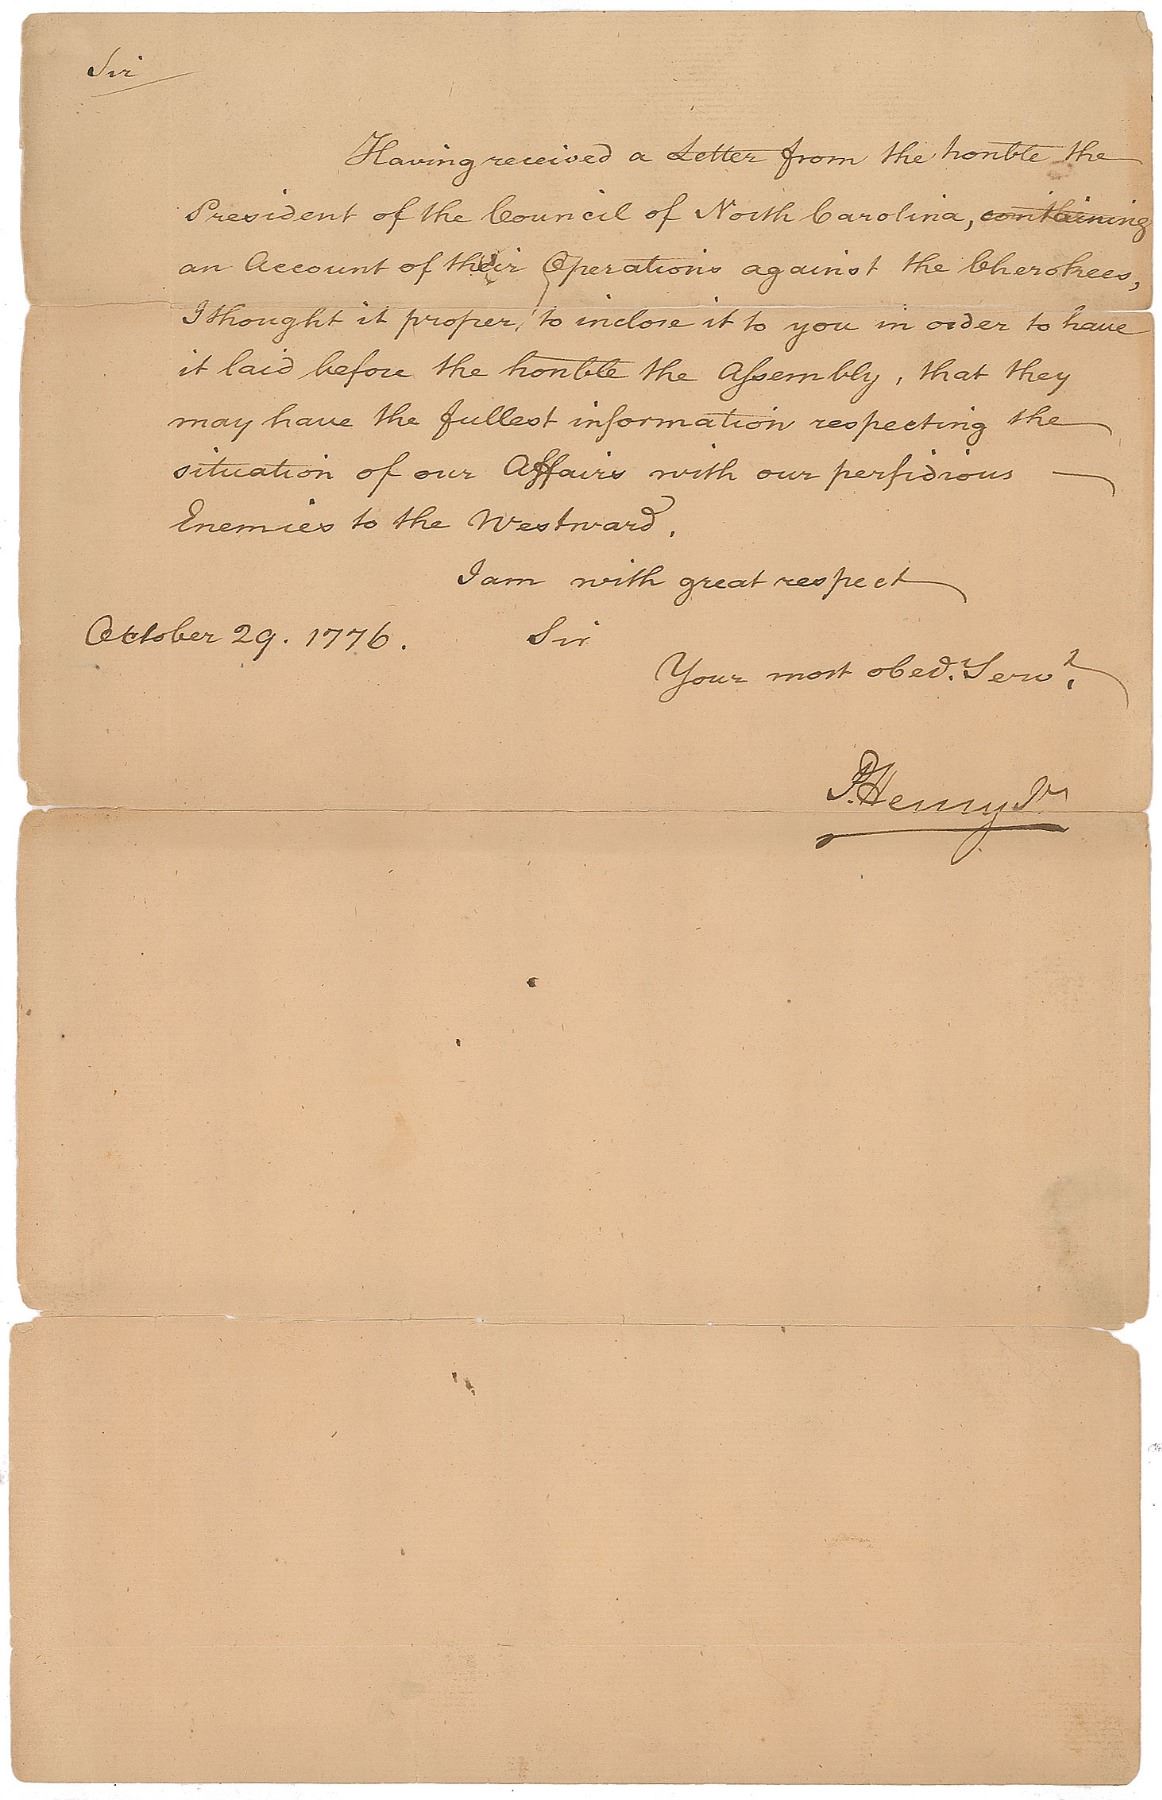 Sir
Having received a Letter from the honble the
President of the Council of North Carolina, containing
an Account of their Operations against the Cherokees,
I thought it proper, to inclose it to you in order to have
it laid before the honble the Assembly, that they
may have the fullest information respecting the
situation of our Affairs with our perfidious
Enemies to the Westward.
I am with great respect
October 29. 1776. Sir
Your most obed. Servt.
P. Henry Jr